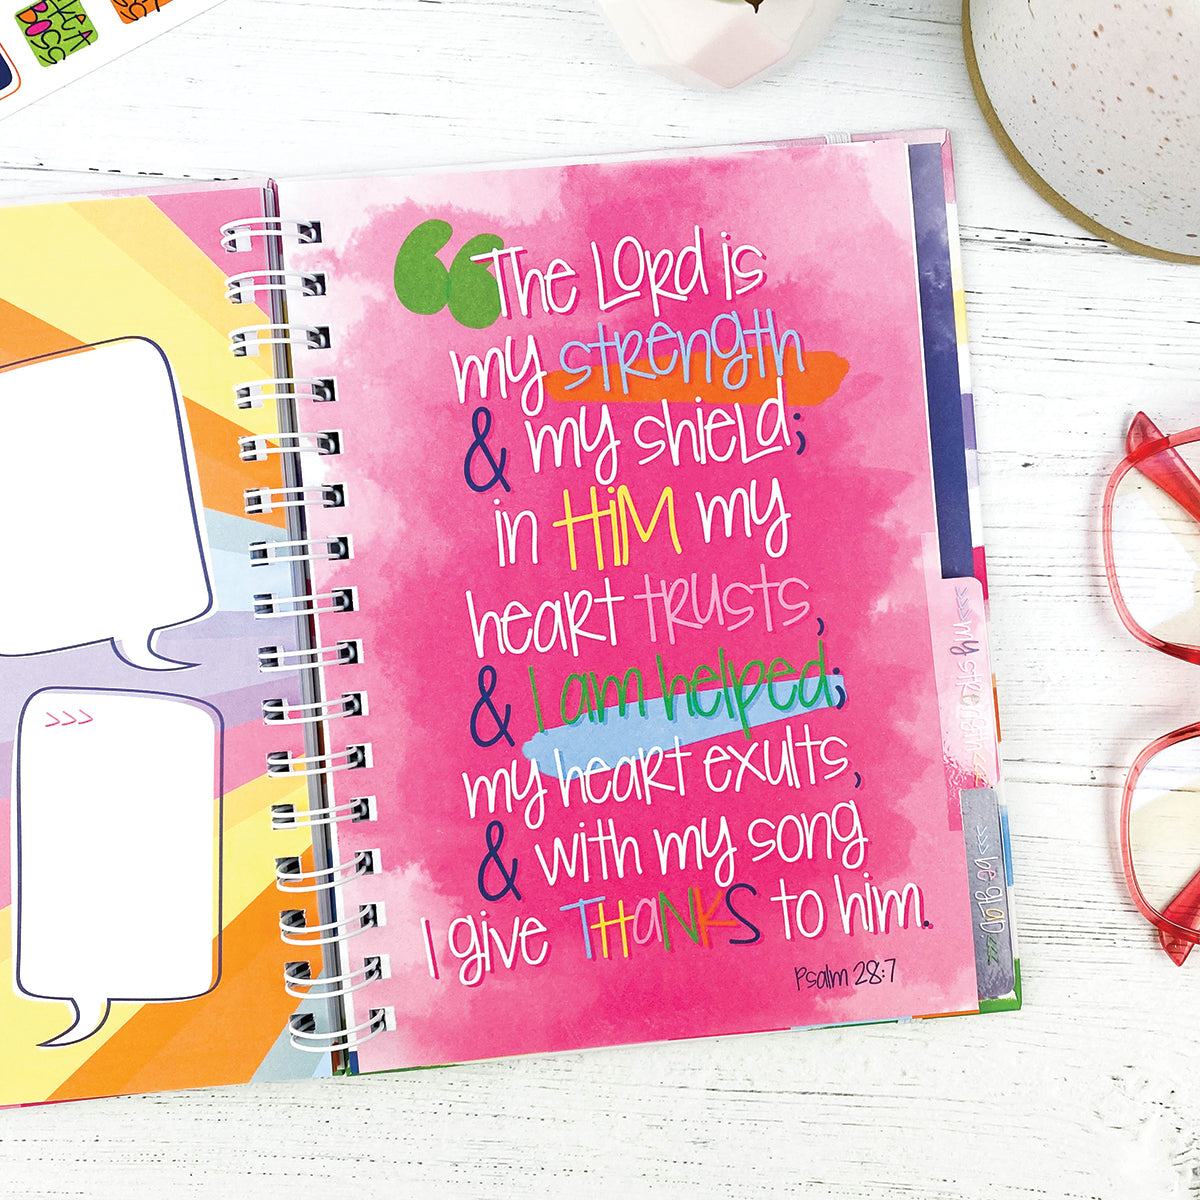 “The Lord is
my strength
& my shield;
in HiM my
heart trusts,
& I am helped;
my heart exults,
& with my song
I give THaNKS to him.
Psalm 28:7
>>>
>>>my strength<<<
>>>be glad<<<
BOSS